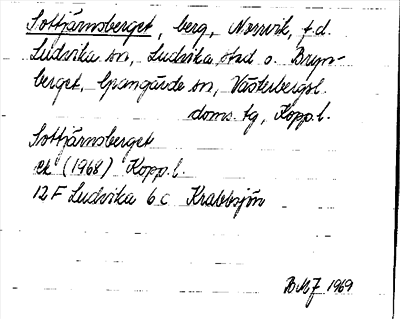 Sottjärnsberget, berg, Norrvik, f.d.
Ludvika sn, Ludvika stad o. Bryn-
berget, Grangärde sn, Västerbergsl.
doms. tg, Kopp. l.
Sottjärnsberget
ek (1968) Kopp. l.
12 F Ludvika 6 c Krabbsjön
1969